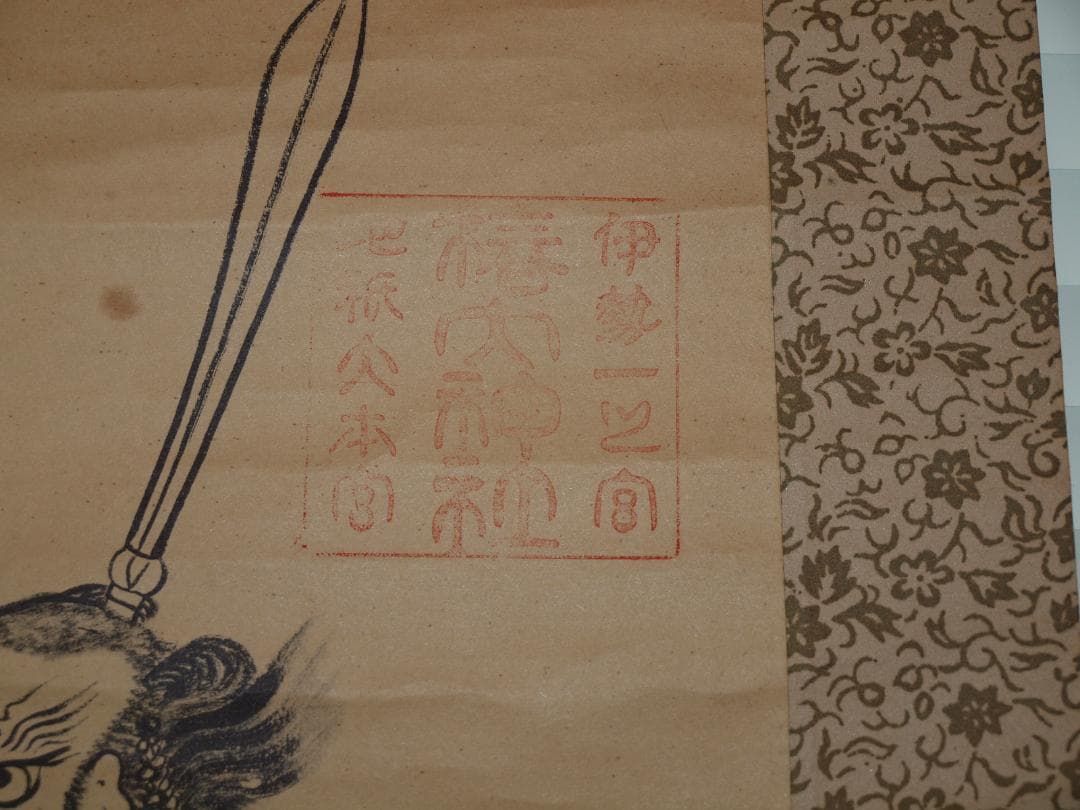 伊勢一之宮
椿大神社
地祇大本宮